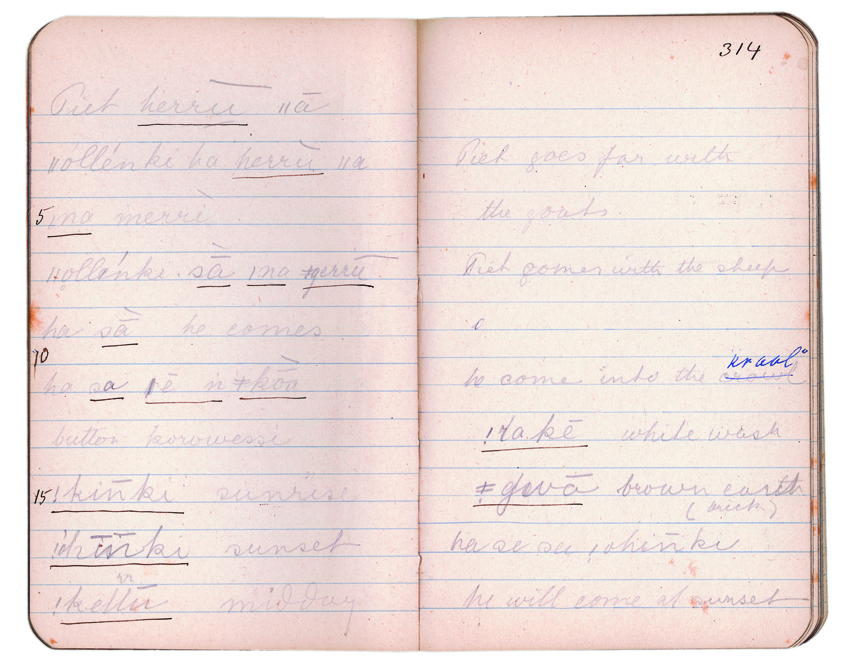 Piet herrù ǁā
ǁóllénki ha herrù ǁa
5 ǀna merrì
ǁollénki sā̀ ǀna ǂgerrū
ha sā̀ he comes
10
ha sa ǀē n ǂkōa
button korowessi
15 !kiñki sunrise
sunset
!kellū midday
rr
314
Piet goes far with
the goats.
Piet comes with the sheep
to come into the kraal
!rakē white wash
ǂgovā brown earth
(brick)
ha se sa
he will come at sunset